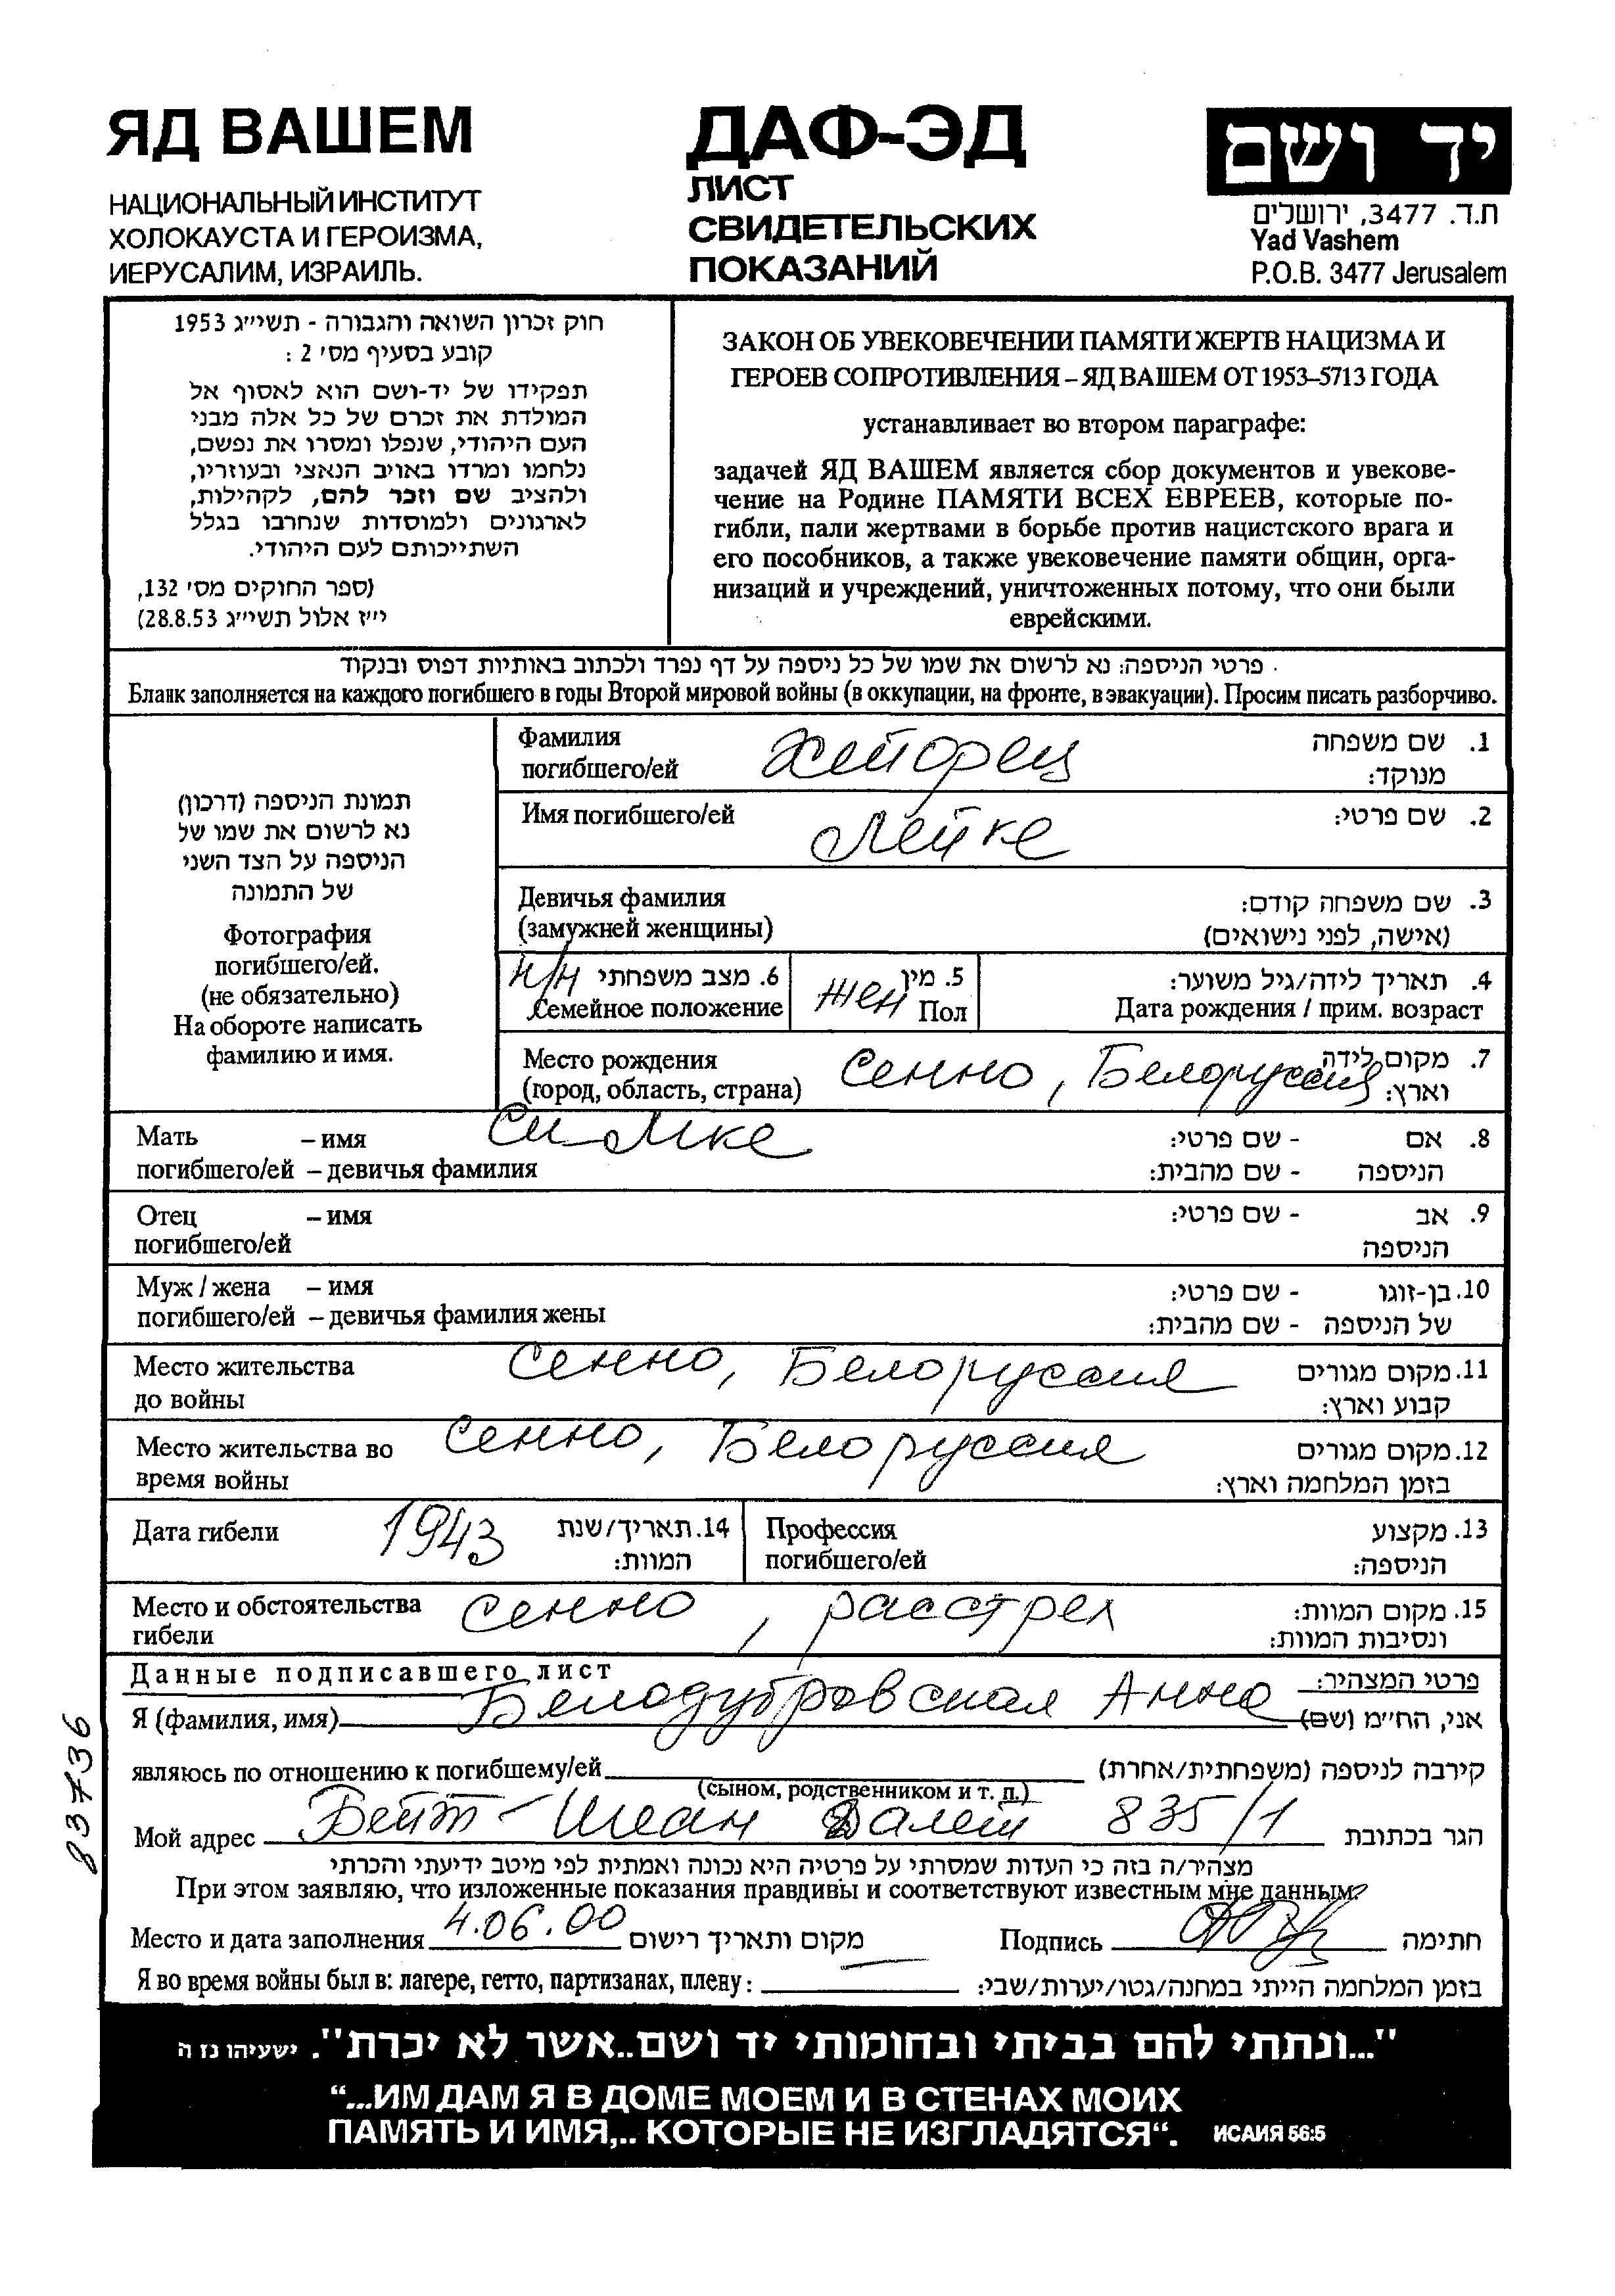 ЯД ВАШЕМ
НАЦИОНАЛЬНЫЙ ИНСТИТУТ
ХОЛОКАУСТА И ГЕРОИЗМА,
ИЕРУСАЛИМ, ИЗРАИЛЬ.
ДАФ-ЭД
ЛИСТ
СВИДЕТЕЛЬСКИХ
ПОКАЗАНИЙ
יד ושם
ת.ד. 3477, ירושלים
Yad Vashem
P.O.B. 3477 Jerusalem
חוק זכרון השואה והגבורה - תשי״ג 1953
קובע בסעיף מס׳ 2 :
תפקידו של יד-ושם הוא לאסוף אל
המולדת את זכרם של כל אלה מבני
העם היהודי, שנפלו ומסרו את נפשם,
נלחמו ומרדו באויב הנאצי ובעוזריו,
ולהציב שם וזכר להם, לקהילות,
לארגונים ולמוסדות שנחרבו בגלל
השתייכותם לעם היהודי.
(ספר החוקים מס׳ 132,
י״ז אלול תשי״ג 28.8.53)
ЗАКОН ОБ УВЕКОВЕЧЕНИИ ПАМЯТИ ЖЕРТВ НАЦИЗМА И
ГЕРОЕВ СОПРОТИВЛЕНИЯ – ЯД ВАШЕМ ОТ 1953–5713 ГОДА
устанавливает во втором параграфе:
задачей ЯД ВАШЕМ является сбор документов и увекове-
чение на Родине ПАМЯТИ ВСЕХ ЕВРЕЕВ, которые по-
гибли, пали жертвами в борьбе против нацистского врага и
его пособников, а также увековечение памяти общин, орга-
низаций и учреждений, уничтоженных потому, что они были
еврейскими.
פרטי הניספה: נא לרשום את שמו של כל ניספה על דף נפרד ולכתוב באותיות דפוס ובנקוד
Бланк заполняется на каждого погибшего в годы Второй мировой войны (в оккупации, на фронте, в эвакуации). Просим писать разборчиво.
תמונת הניספה (דרכון)
נא לרשום את שמו של
הניספה על הצד השני
של התמונה
Фотография
погибшего/ей.
(не обязательно)
На обороте написать
фамилию и имя.
Фамилия
погибшего/ей Хейфец 1. שם משפחה
מנוקד:
Имя погибшего/ей Лейке 2. שם פרטי:
Девичья фамилия 3. שם משפחה קודם:
(замужней женщины) (אישה, לפני נישואים)
н/н 6. מצב משפחתי жен 5. מין 4. תאריך לידה/גיל משוער:
Семейное положение Пол Дата рождения / прим. возраст
Место рождения Сенно, Белоруссия 7. מקום לידה
(город, область, страна) וארץ:
Мать – имя Симке 8. אם - שם פרטי:
погибшего/ей – девичья фамилия הניספה - שם מהבית:
Отец – имя 9. אב - שם פרטי:
погибшего/ей הניספה
Муж / жена – имя 10. בן-זוגו - שם פרטי:
погибшего/ей – девичья фамилия жены של הניספה - שם מהבית:
Место жительства Сенно, Белоруссия 11. מקום מגורים
до войны קבוע וארץ:
Место жительства во Сенно, Белоруссия 12. מקום מגורים
время войны בזמן המלחמה וארץ:
Дата гибели 1943 14. תאריך/שנת Профессия 13. מקצוע
המוות: погибшего/ей הניספה:
Место и обстоятельства Сенно, расстрел 15. מקום המוות:
гибели ונסיבות המוות:
Данные подписавшего лист פרטי המצהיר:
Я (фамилия, имя) Белодубровская Анна אני, הח״מ (שם)
являюсь по отношению к погибшему/ей קירבה לניספה (משפחתית/אחרת)
(сыном, родственником и т. п.)
Мой адрес Бейт-Шеан Далет 835/1 הגר בכתובת
מצהיר/ה בזה כי העדות שמסרתי על פרטיה היא נכונה ואמתית לפי מיטב ידיעתי והכרתי
При этом заявляю, что изложенные показания правдивы и соответствуют известным мне данным.
Место и дата заполнения 4.06.00 מקום ותאריך רישום Подпись חתימה
Я во время войны был в: лагере, гетто, партизанах, плену: בזמן המלחמה הייתי במחנה/גטו/יערות/שבי:
83736
"...ונתתי להם בביתי ובחומותי יד ושם..אשר לא יכרת". ישעיהו נז ה
“...ИМ ДАМ Я В ДОМЕ МОЕМ И В СТЕНАХ МОИХ
ПАМЯТЬ И ИМЯ,.. КОТОРЫЕ НЕ ИЗГЛАДЯТСЯ“. ИСАИЯ 56:5